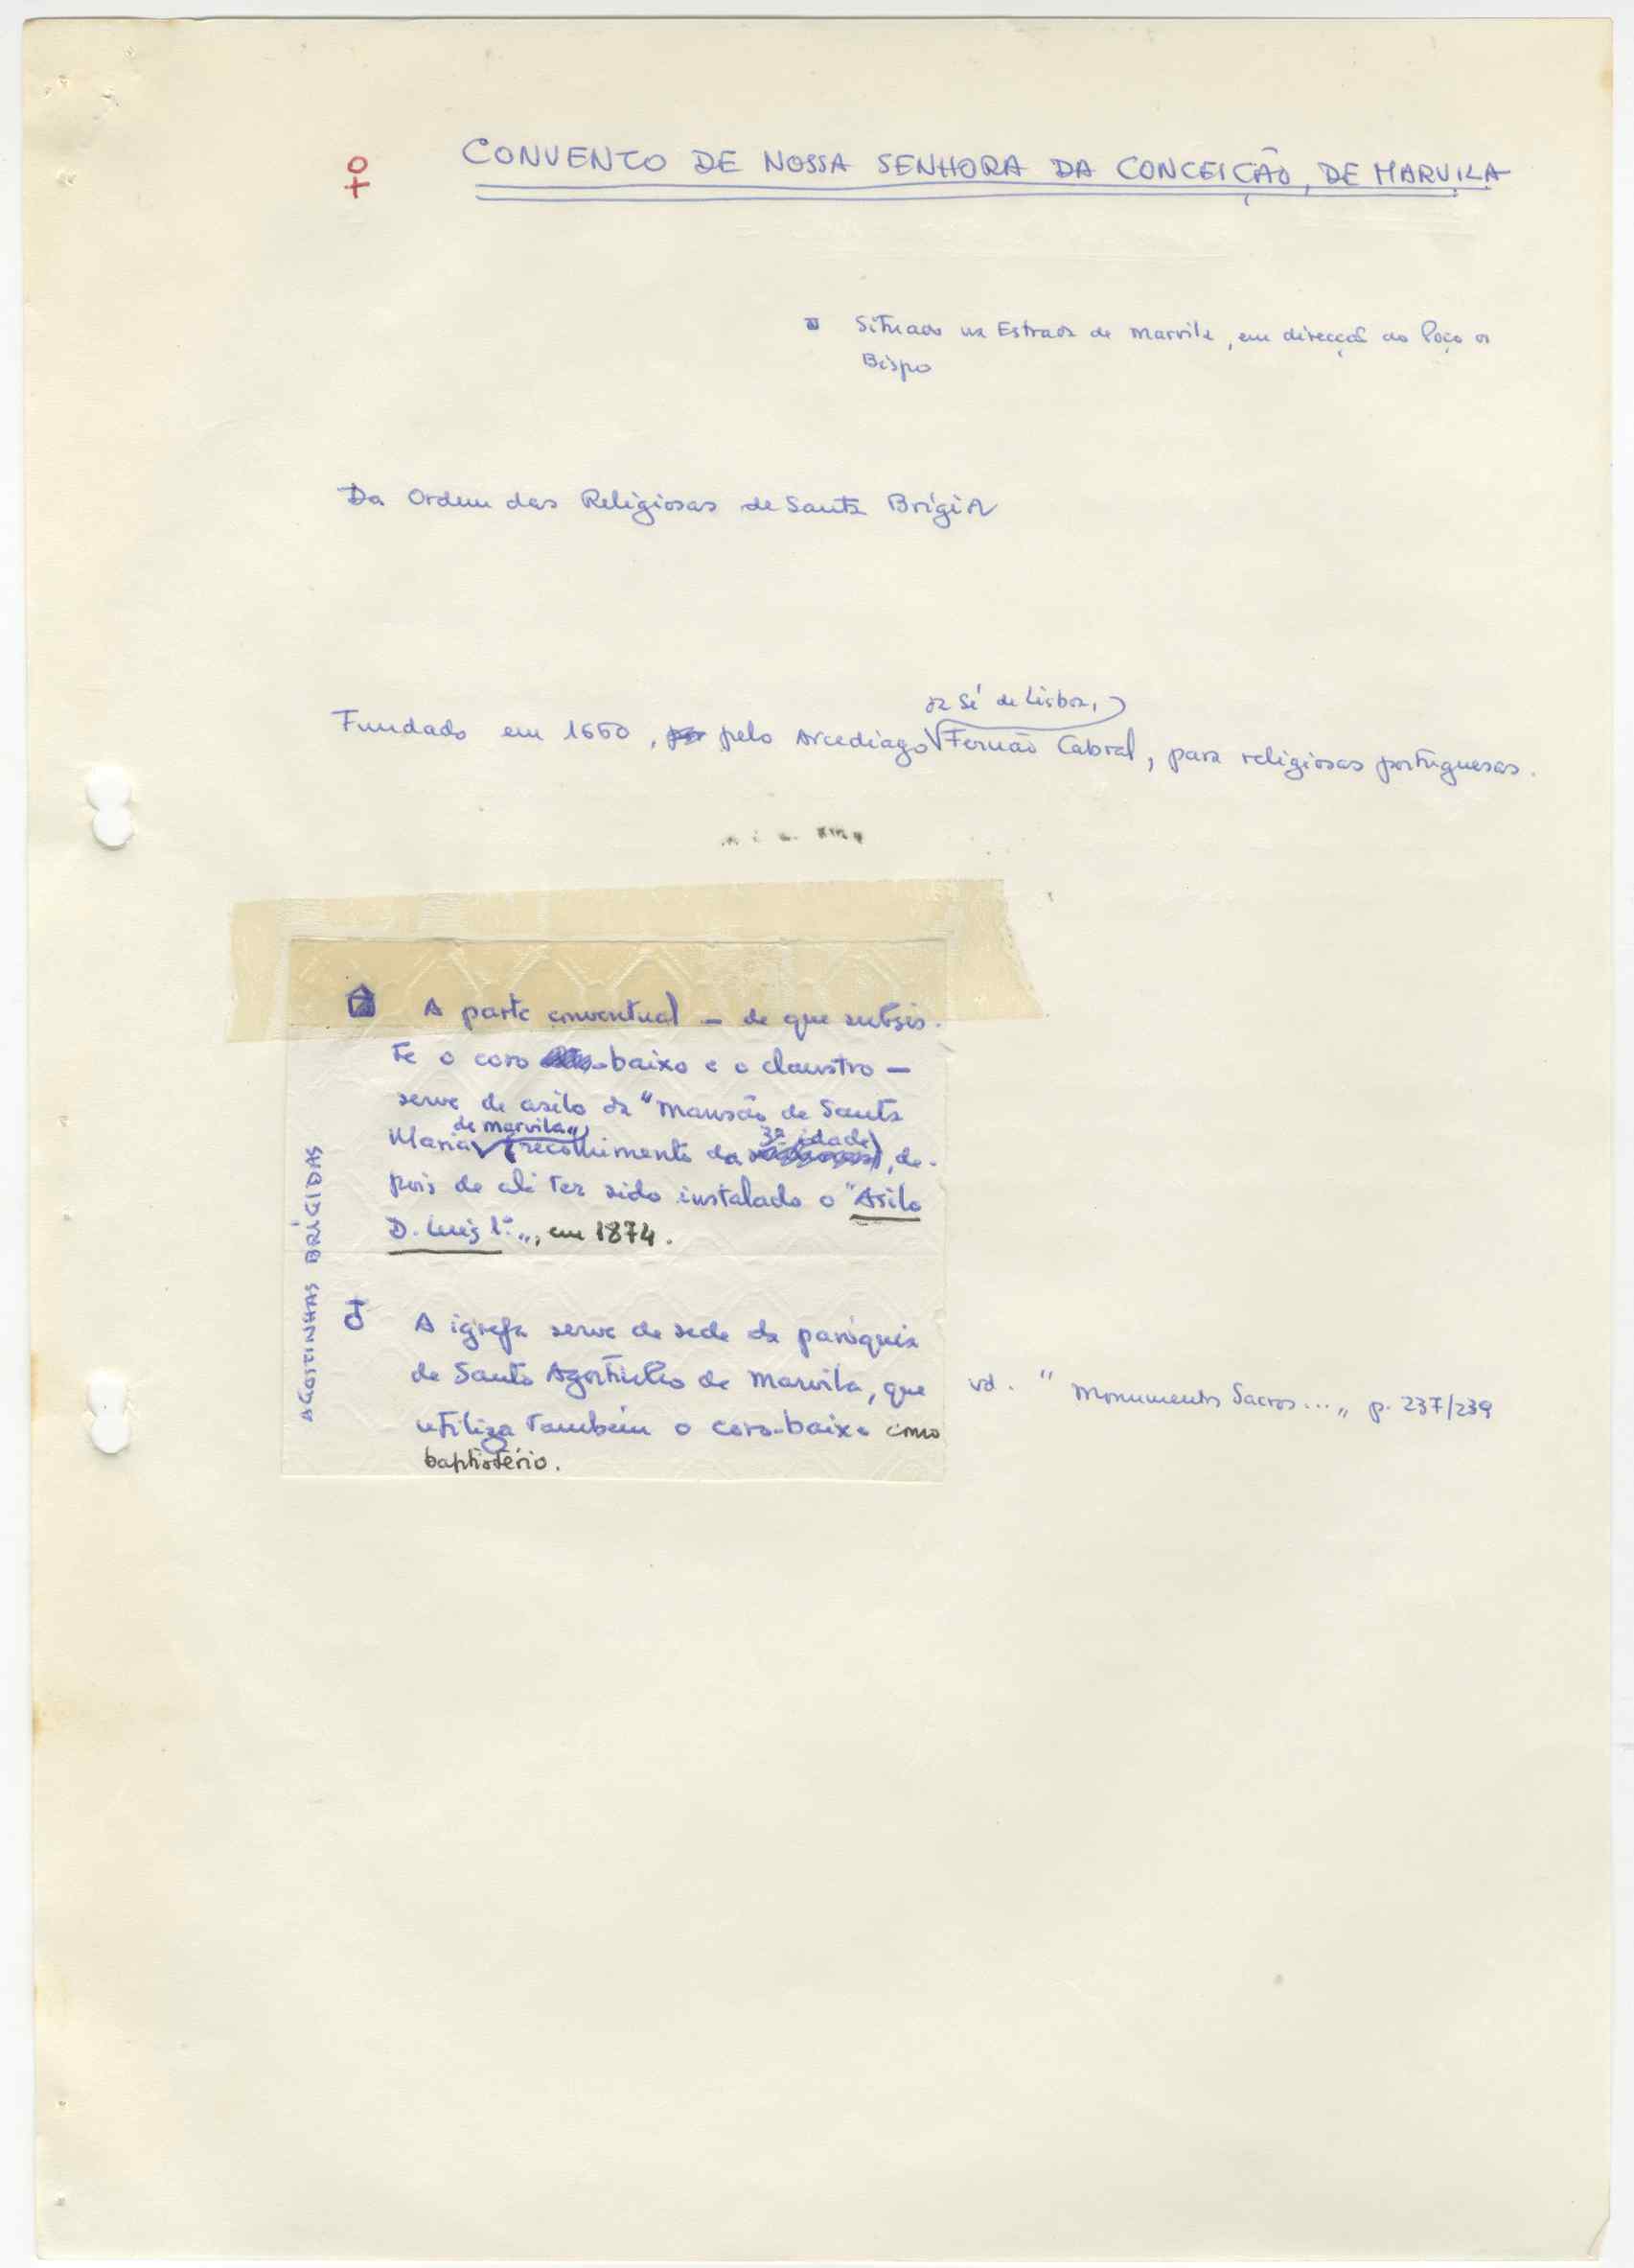 ♀ CONVENTO DE NOSSA SENHORA DA CONCEIÇÃO, DE MARVILA
Situado na Estrada de Marvila, em direcção ao Poço do
Bispo
Da Ordem das Religiosas de Santa Brígida
da Sé de Lisboa,
Fundado em 1660, pelo Arcediago Fernão Cabral, para religiosas portuguesas.
A parte conventual – de que subsis-
te o coro baixo e o claustro –
serve de asilo da "Mansão de Santa
de Marvila„
3ª idade
Maria (recolhimento da ), de-
pois de ali ter sido instalado o "Asilo
D. Luiz 1º„, em 1874.
AGOSTINHAS BRÍGIDAS
A igreja serve de sede da paróquia
de Santo Agostinho de Marvila, que
utiliza também o coro-baixo como
baptistério.
vd. "Monumentos Sacros...„ p. 237/239